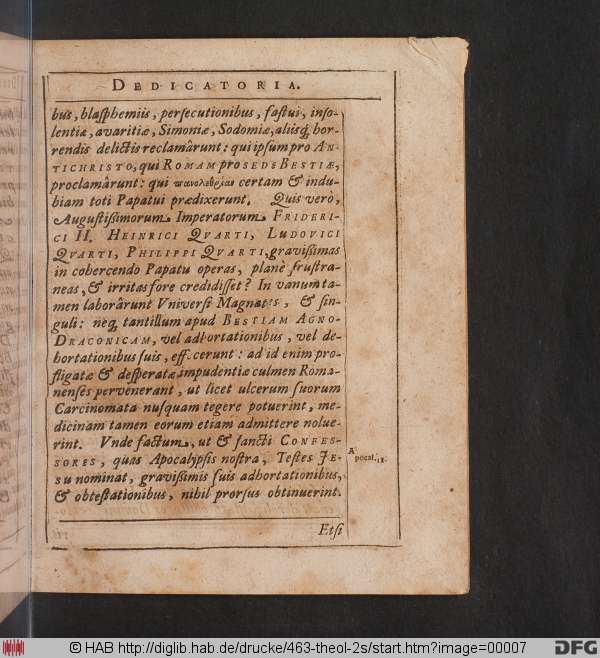 DEDICATORIA.
bus, blasphemiis, persecutionibus, fastui, inso-
lentiæ, avaritiæ, Simoniæ, Sodomiæ, aliisq, hor-
rendis delictis reclamârunt: qui ipsum pro AN-
TICHRISTO, qui ROMAM pro SEDE BESTIÆ,
proclamârunt: qui πανολεθρίαν certam & indu-
biam toti Papatui prædixerunt. Quis verò,
Augustissimorum Imperatorum FRIDERI-
CI II. HEINRICI QVARTI, LUDOVICI
QVARTI, PHILIPPI QVARTI, gravissimas
in cohercendo Papatu operas, planè frustra-
neas, & irritas fore credidisset? In vanum ta-
men laborârunt Vniversi Magnates, & sin-
guli: neq, tantillum apud BESTIAM AGNO-
DRACONICAM, vel adhortationibus, vel de-
hortationibus suis, effecerunt: ad id enim pro-
fligatæ & desperatæ impudentiæ culmen Roma-
nenses pervenerant, ut licet ulcerum suorum
Carcinomata nusquam tegere potuerint, me-
dicinam tamen eorum etiam admittere nolue-
rint. Vnde factum, ut & sancti CONFES-
SORES, quas Apocalypsis nostra, Testes JE-
SU nominat, gravissimis suis adhortationibus,
& obtestationibus, nihil prorsus obtinuerint.
A
pocal. 11.
Etsi
© HAB http://diglib.hab.de/drucke/463-theol-2s/start.htm?image=00007
DFG